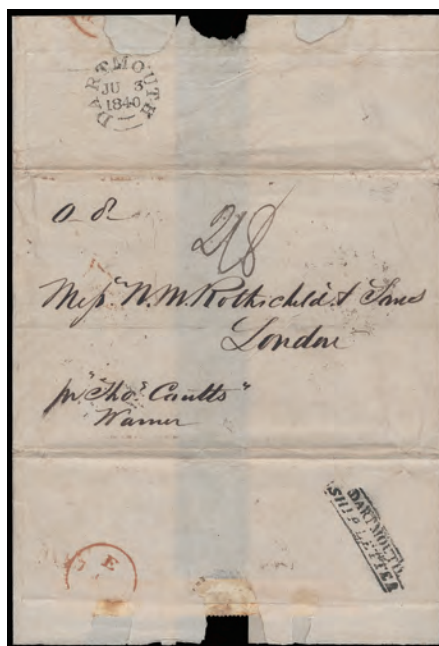 DARTMOUTH
JU 3
1840
2/8
Messrs. N. M. Rothschild & Sons
London
pr "Thos. Coutts"
Warner
DARTMOUTH
SHIP LETTER
E